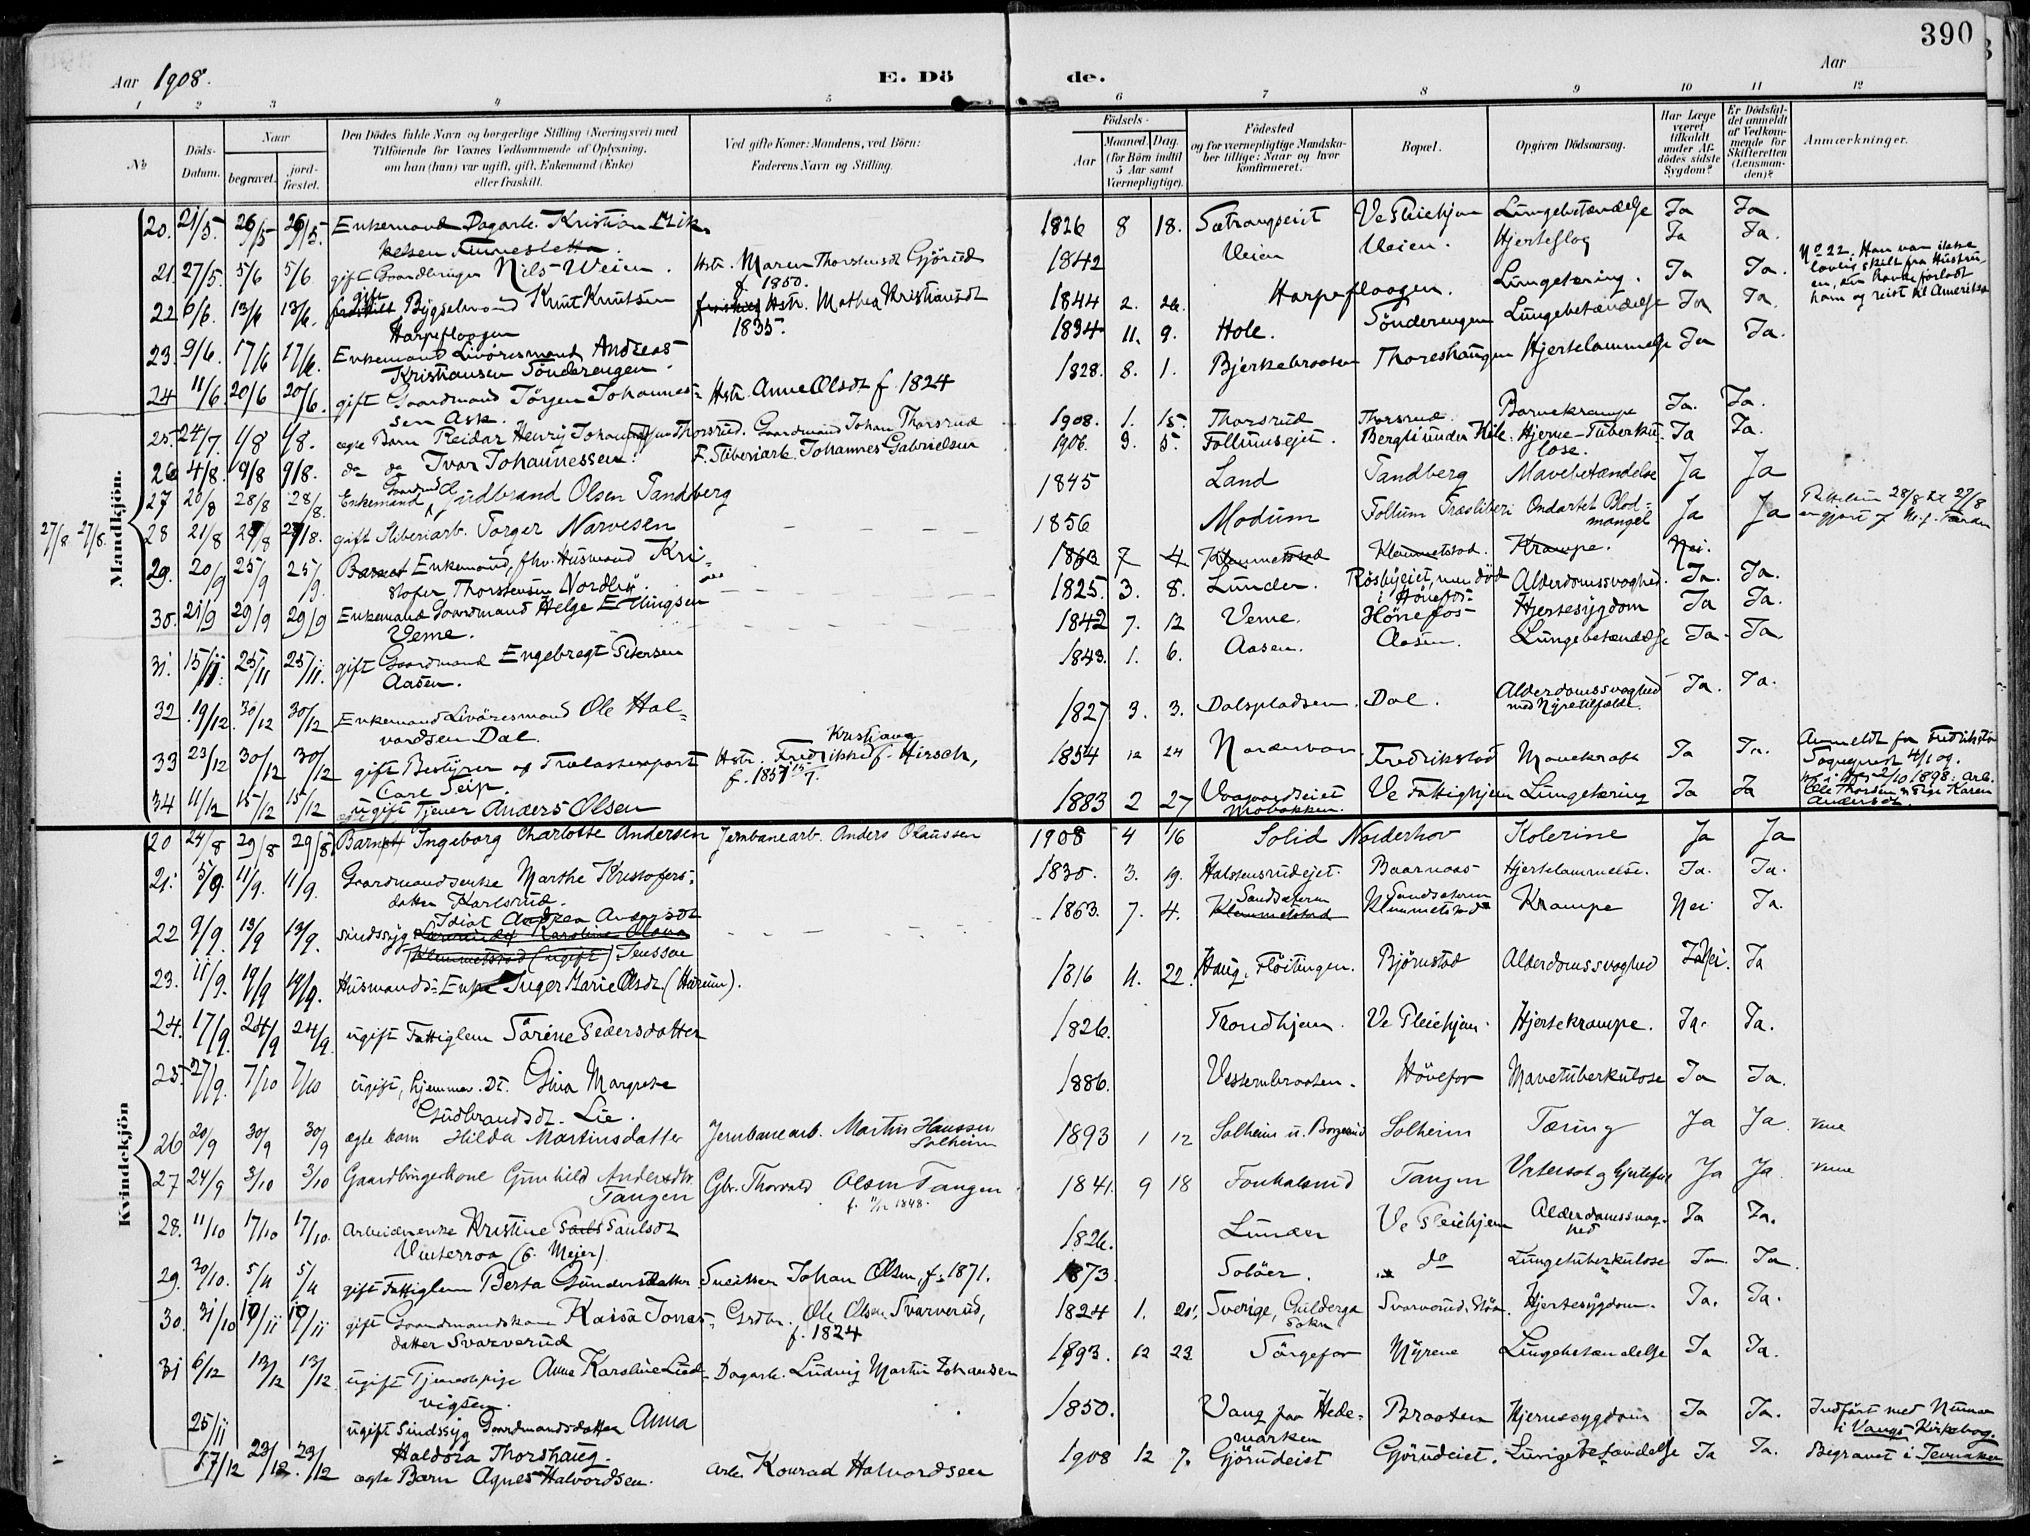 390
Aar 1908. E. Dö de. Aar
1 2 3 4 5 6 7 8 9 10 11 12
No
Döds-Datum.
Naar
begravet.
jord-fæstet.
Den Dödes fulde Navn og borgerlige Stilling (Næringsvei) med
Tilföiende for Voxnes Vedkommende af Oplysning,
om han (hun) var ugift, gift, Enkemand (Enke)
eller fraskilt.
Ved gifte Koner: Mandens, ved Börn:
Faderens Navn og Stilling.
Födsels-
Aar
Maaned. Dag.
(for Börn indtil
5 Aar samt
Værnepligtige).
Födested
og for værnepligtige Mandska-
ber tillige: Naar og hvor
konfirmeret.
Bopæl.
Opgiven Dödsaarsag.
Har Læge
været
tilkaldt
under Af-
dödes sidste
Sygdom?
Er Dödsfal-
det anmeldt
af Vedkom-
mende for
Skifteretten
(Lensman-
den)?
Anmærkninger.
Mandkjön.
20. 21/5. 26/5 26/5. Enkemand Dagarb. Kristian 1826 8 18. Lungebetændelse Ja Ja
21. 27/5. 5/6 5/6 gift Gaardbruger Nils Veien. Hstr. Maren Thorstensdt Gjörud f. 1850. 1842 Veien Veien. Hjerteslag Ja Ja.
22 6/6. 13/6 13/6. gift Bygselmand Knut Knutsen Hstr. Mathea Kristiansdt 1844 2. 26. Harpefloagen. Lungetæring. Ja Ja. No 22. Han var ikke
Harpefloagen 1835. lovlig skilt fra Hustru
en, den havde forladt
ham og reist til Amerika
23. 9/6. 17/6 17/6. Enkemand Livöresmand Andreas 1834 11. 9. Hole. Sönderengen Lungebetændelse Ja Ja.
Kristiansen Sönderengen.
24 11/6. 20/6 20/6. gift Gaardmand Jörgen Johannes- Hstr. Anne Olsdt f. 1824 1828. 8. 1. Bjerkebraaten Thoreshaugen Hjertelammelse Ja Ja.
sen Ask.
25. 24/7. 1/8 1/8. ægte Barn Reidar Henry Johansen Thorsrud. Gaardmand Johan Thorsrud 1908. 1. 15. Thorsrud Thorsrud Barnekrampe Ja. Ja.
26 4/8. 9/8 9/8. do do Ivar Johannessen. F. Sliberiarb. Johannes Gabrielsen 1906. 9. 5. Follumsejet. Hjerne-Tuberku- Ja Ja.
lose.
27 20/8 28/8 28/8. Enkemand Gaardmd Gudbrand Olsen Tandberg 1845 Land Tandberg Mavebetændelse Ja Ja
27/8 27/8. 28 21/8 gift Sliberiarb. Torger Narvesen 1856 Modum Follum Træsliberi Ondartet Blod- Ja Ja
mangel
1863 7 4 Klemmetstad Klemmetstad. Krampe. Nei.
29. 20/9 25/9 25/9. Enkemand, fhv. Husmand Kri- 1825. 3. 8. Lunder. Alderdomssvaghed. Ja. Ja.
stofer Thorstensen Nordby. i Hönefos
30. 21/9 29/9 29/9 Enkemand Gaardmand Helge Erlingsen 1842 7. 12 Veme. Hönefos Hjertesygdom Ja Ja.
Veme.
31. 15/11. 25/11 25/11. gift Gaardmand Engebregt Petersen 1843. 1. 6. Aasen. Aasen. Lungebetændelse Ja. Ja.
Aasen.
32 19/12. 30/12 30/12 Enkemand Livöresmand Ole Hal- 1827 9. 3. Dalspladsen. Dal. Alderdomssvaghed Ja. Ja.
vordsen Dal. med Nyretilfælde.
33 23/12 30/12 30/12 gift Bestyrer af Trælastexport Hstr. Fredrikke Kristiane f. Hirsch, 1854 12 24 Norderhov. Fredrikstad Mavekræft Ja Ja. Anmeldt fra Fredrikstad
Carl Seip. f. 1857 Sogneprest 4/1 09.
34 11/12 15/12 15/12 ugift Tjener Anders Olsen 1883 2 27 Ve Fattighjem Lungetæring Ja Ja
Mobakken.
Kvindekjön
20 24/8 29/8 29/8 Barn Ingeborg Charlotte Andersen Jernbanearb. Anders Olaussen 1908 4 16 Solid Norderhov Kolerine Ja Ja
21. 5/9. 11/9. 11/9. Gaardmandsenke Marthe Kristofers- 1830. 3. 19. Halstensrudejet. Baarnaas Hjertelammelse. Ja. Ja.
datter Karlsrud.
22 9/9. 13/9 13/9. sindssyg Idiot Andrea Andersdt 1863. 7. 4. Sandsætern Klemmetstad Sandsætern Klemmetstad Krampe Nei Ja.
Jenssen
23. 11/9. 19/9 19/9. Husmands-Enke Inger Marie Olsdt. (Hærum). 1816 4. 22. Haug, Flöitingen. Björnstad Alderdomssvaghed Nei. Ja
24. 17/9. 24/9 24/9. ugift Fattiglem Sörine Pedersdatter 1826. Trondhjem. Ve Pleiehjem. Hjertekrampe. Ja. Ja.
25. 27/9. 7/10 7/10 ugift, hjemmev. Dt. Gina Margrete 1886. Vesternbraaten. Hönefos Mavetuberkulose Ja Ja.
Gudbrandsdt. Lie.
26 20/9 30/9 30/9 ægte barn Hilda Martinsdatter Jernbanearb. Martin Hanssen 1893 1 12 Solheim u. Borgerud Solheim Tæring Ja Ja. Veme
Solheim
27 24/9 3/10 3/10 Gaardbrugerkone Gunhild Andersdtr. Gbr. Thorvald Olsen Tangen 1841. 9 18 Tangen Ja Ja Veme
Tangen f. 1848.
28. 11/10 17/10 17/10. Arbeiderenke Kristine Paulsdt 1826. Lunder Ve Pleiehjem Alderdomssvag- Ja Ja.
Vinterroa (f. Mejer) hed
29. 30/10. 5/11 5/11 gift Fattiglem Berta Gundersdatter Snekker Johan Olsen, f. 1871. 1873. Solöer. do Lungetuberkulose Ja Ja.
30. 31/10 10/11 10/11 gift Gaardmandskone Kaisa Jonas- Grdbr. Ole Olsen Svarverud, 1824 1. 20. Sverige, Hjertesygdom. Ja. Ja.
datter Svarverud f. 1824
31 6/12 13/12 13/12. ugift Tjenestepige Anna Karoline Lud- Dagarb. Ludvig Martin Johansen 1893. 12 23 Sörgefos Myrene Lungebetændelse Ja Ja.
vigsen.
25/11 ugift Sindssyg Gaardmandsdatter Anna 1850. Vang paa Hede- Braaten Hjernesygdom Ja Ja. Indfört med Numer
Haldora Thorshaug. marken i Vangs Kirkebog.
17/12 23/12. 23/12 ægte Barn Agnes Halvordsen. Arb. Konrad Halvordsen 1908 12 7. Gjörudeiet Gjörudeiet. Lungebetændelse Ja Ja. Begravet i Jevnaker